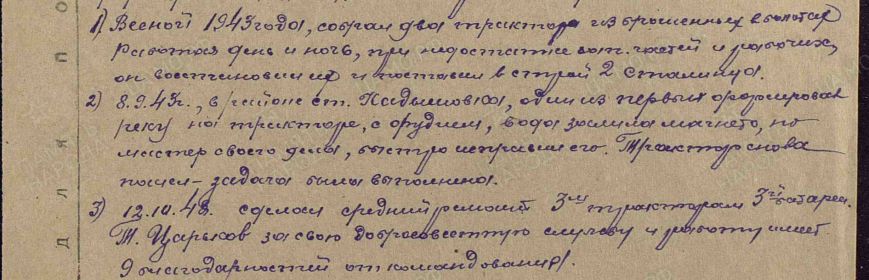 1) Весной 1943 года, собрал два трактора из брошенных в болотах
Работая день и ночь, при недостатке зап. частей и рабочих,
он восстановил их и поставил в строй 2 Сталинца.
2) 8.9.43г., в районе ст. один из первых форсировал
реку на тракторе, с орудием, вода залила магнето, но
мастер своего дела, быстро исправил его. Трактор снова
пошел - задача была выполнена.
3) 12.10.43. сделал средний ремонт 3м тракторам 3й батареи.
Т. Царьков за свою добросовестную службу и работу имеет
9 благодарностей от командования.
для по